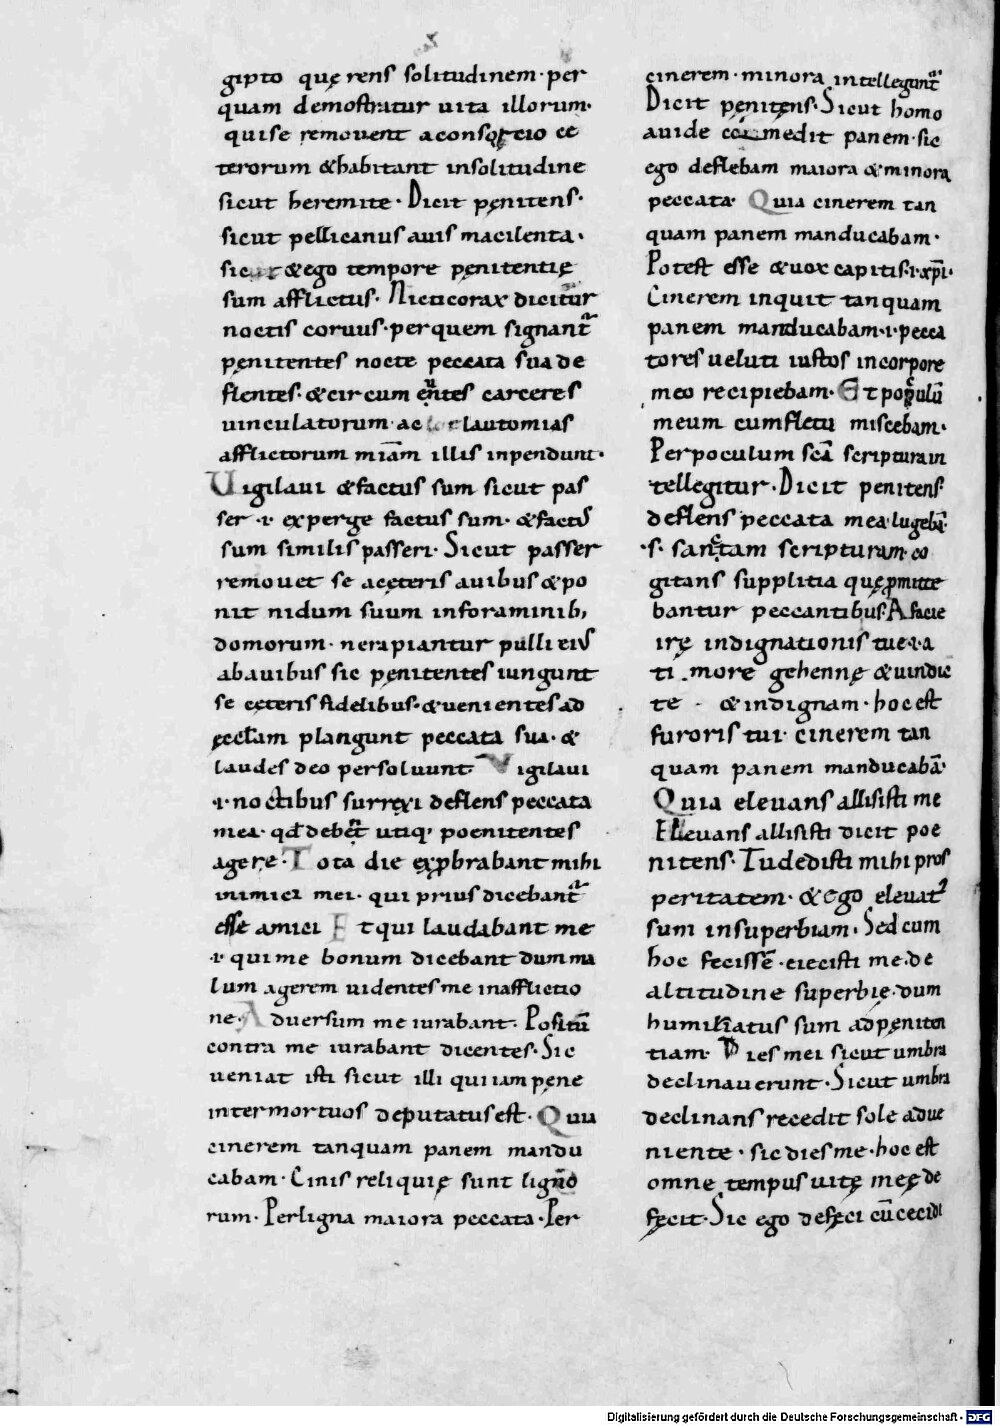 gipto quę rens solitudinem · per
quam demostratur uita illorum·
qui se remouent a consortio ce
terorum & habitant in solitudine
sicut heremite · Dicit pęnitens·
sicut pellicanus auis macilenta ·
sicut & ego tempore pęnitentię
sum afflictus · Nicticorax dicitur
noctis coruus · per quem signant᷑
pęnitentes nocte peccata sua de
flentes · & circum eu̅ntes carceres
uinculatorum · ac lautomias
afflictorum mia̅m illis inpendunt ·
Uigilaui & factus sum sicut pas
ser · i · experge factus sum · & factus
sum similis passeri · Sicut passer
remouet se a cęteris auibus & po
nit nidum suum in foraminib;
domorum · ne rapiantur pulli eius
ab auibus sic pęnitentes iungunt
se cęteris fidelibus · & uenientes ad
ęccl̅am plangunt peccata sua · &
laudes deo persoluunt · Vigilaui
· i · noctibus surrexi deflens peccata
mea · qd̅ debent᷑ utiq; poenitentes
agere · Tota die exprobrabant mihi
inimici mei · qui prius dicebant᷑
esse amici Et qui laudabant me
· i · qui me bonum dicebant dum ma
lum agerem uidentes me in afflictio
ne · Aduersum me iurabant · Positu̅
contra me iurabant dicentes · Sic
ueniat isti sicut illi qui iam pene
inter mortuos deputatus est · Quia
cinerem tanquam panem mandu
cabam · Cinis reliquię sunt ligno
rum · Per ligna maiora peccata · Per
cinerem · minora intellegunt᷑
Dicit pęnitens · Sicut homo
auide comedit panem · sic
ego deflebam maiora & minora
peccata · Quia cinerem tan
quam panem manducabam ·
Potest esse & uox capitis · i · xp̅i ·
Cinerem inquit tanquam
panem manducabam · i · pecca
tores ueluti iustos in corpore
meo recipiebam · Et poculu̅
meum cum fletu miscebam ·
Per poculum sca̅ scriptura in
tellegitur · Dicit penitens ·
deflens peccata mea lugeba̅ ·
· s · sanctam scripturam co
gitans supplitia quę promitte
bantur peccantibus · A facie
irę indignationis tue · i · a
timore gehennę & uindic
te & indignam · hoc est
furoris tui · cinerem tan
quam panem manducaba̅ ·
Quia eleuans allisisti me
Eleuans allisisti dicit poe
nitens · Tu dedisti mihi pros
peritatem · & ego eleuatus
sum in superbiam · Sed cum
hoc fecisse̅ · eiecisti me · de
altitudine superbię · dum
humiliatus sum ad pęniten
tiam · Dies mei sicut umbra
declinauerunt · Sicut umbra
declinans recedit sole adue
niente · sic dies me · hoc est
omne tempus uitę męę de
fęcit · Sic ego defęci cu̅ cecidi